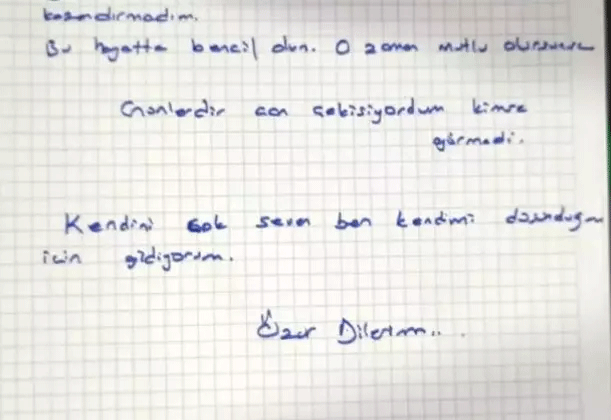 kazandırmadım.
Bu hayatta bencil olun. O zaman mutlu olursunuz
Günlerdir can çekişiyordum kimse
görmedi.
Kendini çok seven ben kendimi
için gidiyorum.
Özür Dilerim...